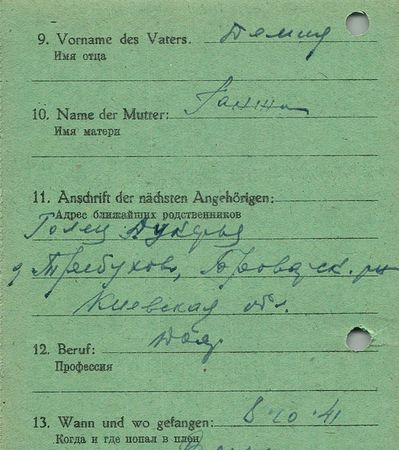 9. Vorname des Vaters. Демид
Имя отца
10. Name der Mutter: Ганна
Имя матери
11. Anschrift der nächsten Angehörigen:
Адрес ближайших родственников
Голец
д Требухово, Броварск. рн
Киевская обл.
12. Beruf:
Профессия
13. Wann und wo gefangen: 8 10 41
Когда и где попал в плен